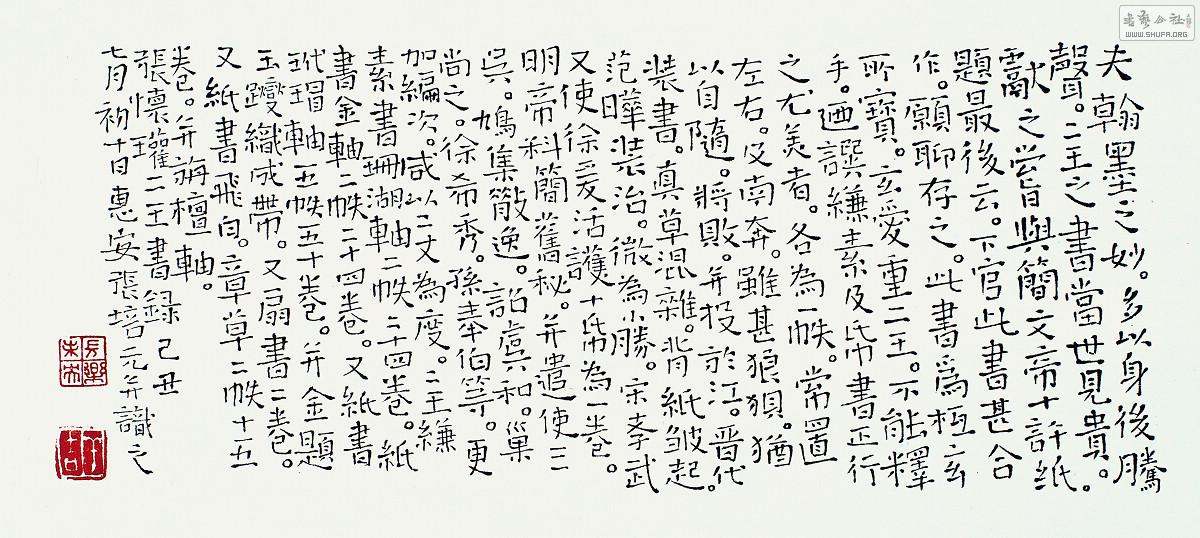 夫翰墨之妙。多以身後騰
聲。二王之書當世見貴。
獻之嘗與簡文帝十許紙。
題最後云。下官此書甚合
作。願聊存之。此書為桓玄
所寶。玄愛重二王。不能釋
手。迺譔縑素及帋書正行
之尤美者。各為一帙。常置
左右。及南奔。雖甚狼狽。猶
以自隨。將敗。并投於江。晉代
裝書。真草混雜。背紙皺起。
范曄裝治。微為小勝。宋孝武
又使徐爰活護十帋為一卷。
明帝科簡舊秘。并遣使三
吳。鳩集散逸。詔虞和。巢
尚之。徐希秀。孫奉伯等。更
加編次。咸以二丈為度。二王縑
素書珊瑚軸二帙二十四卷。紙
書金軸二帙二十四卷。又紙書
玳瑁軸五帙五十卷。并金題
玉躞織成帶。又扇書二卷。
又紙書飛白。章草二帙十五
卷。并旃檀軸。
張懷瓘二王書錄 己丑
七月初十日惠安張培元并識之
長樂未央
書藝公社
WWW.SHUFA.ORG